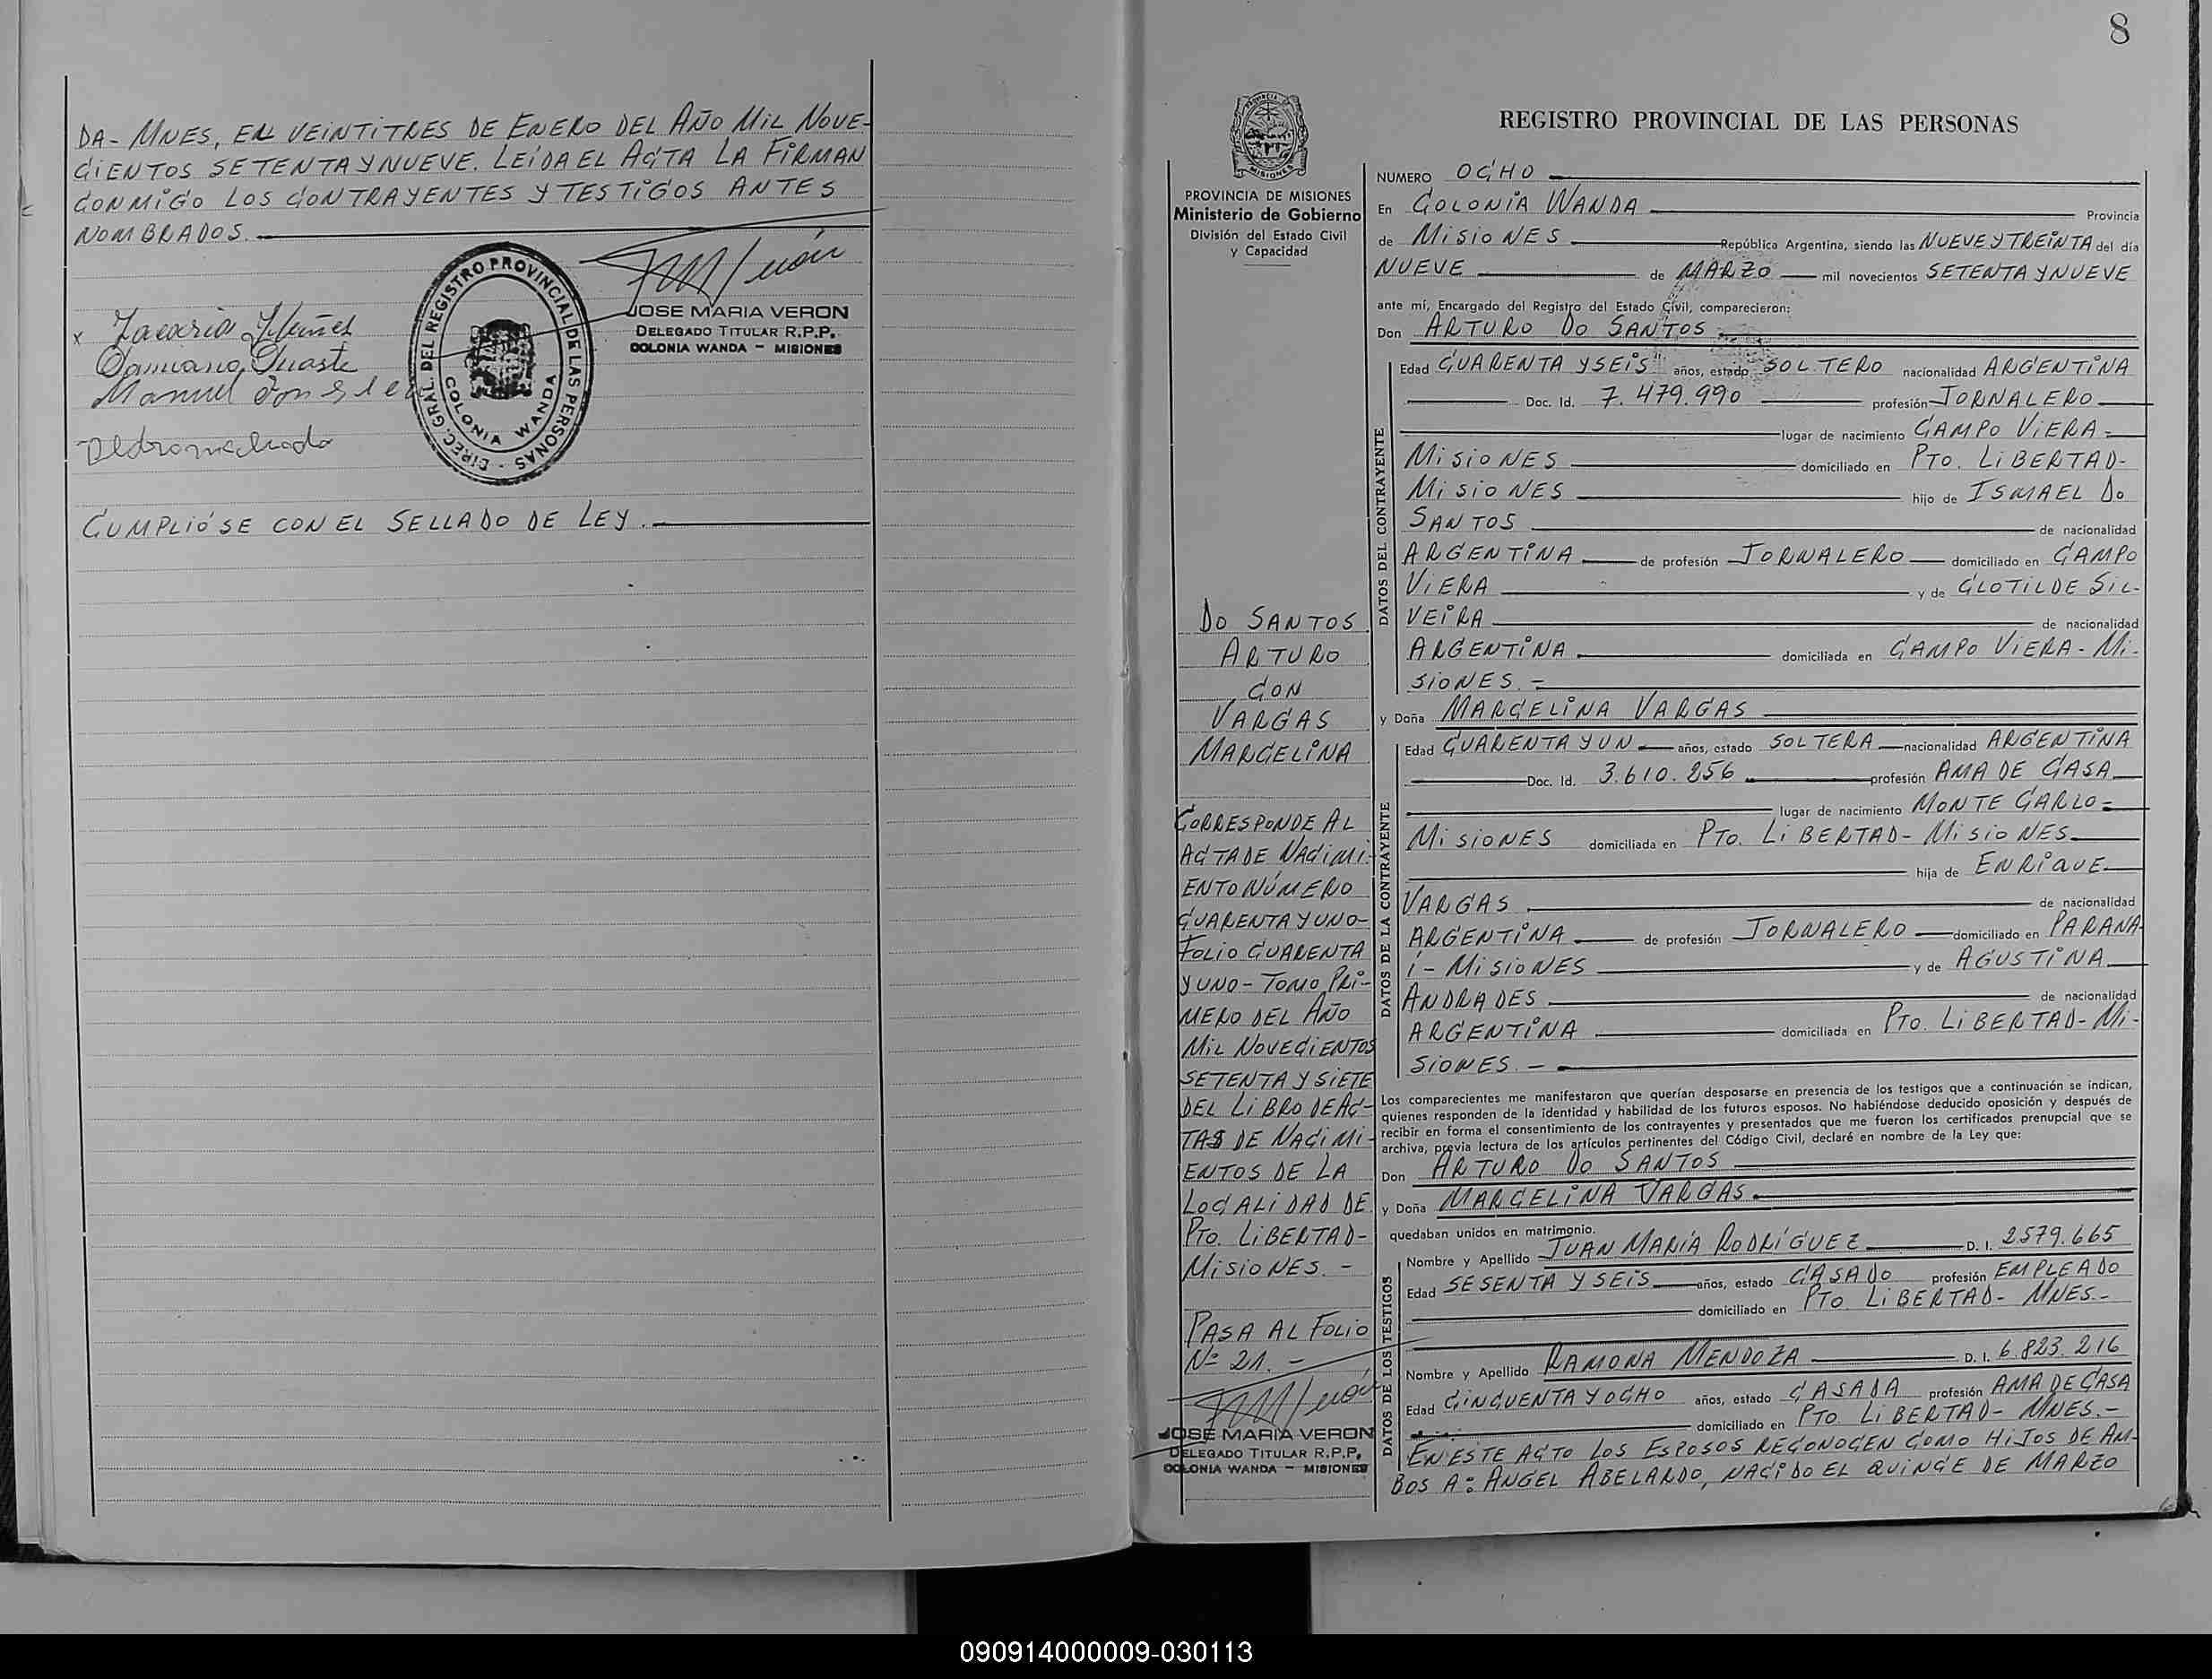 DA- MNES, EN VEINTITRES DE ENERO DEL AÑO MIL NOVE-
CIENTOS SETENTA Y NUEVE. LEIDA EL ACTA LA FIRMAN
CONMIGO LOS CONTRAYENTES Y TESTIGOS ANTES
NOMBRADOS.
JOSE MARIA VERON
DELEGADO TITULAR R.P.P.
COLONIA WANDA - MISIONES
DIREC. GRAL. DEL REGISTRO PROVINCIAL DE LAS PERSONAS -
COLONIA WANDA
x Zacaria
Damiano Duarte
Manuel
Pedro machado
CUMPLIÓSE CON EL SELLADO DE LEY.
8
PROVINCIA DE MISIONES
Ministerio de Gobierno
División del Estado Civil
y Capacidad
DO SANTOS
ARTURO
CON
VARGAS
MARCELINA
CORRESPONDE AL
ACTA DE NACIMI-
ENTO NÚMERO
CUARENTA Y UNO-
FOLIO CUARENTA
Y UNO- TOMO PRI-
MERO DEL AÑO
MIL NOVECIENTOS
SETENTA Y SIETE
DEL LIBRO DE AC-
TAS DE NACIMI-
ENTOS DE LA
LOCALIDAD DE
PTO. LIBERTAD-
MISIONES. -
PASA AL FOLIO
Nº 21. -
JOSE MARIA VERON
DELEGADO TITULAR R.P.P.
COLONIA WANDA - MISIONES
REGISTRO PROVINCIAL DE LAS PERSONAS
NUMERO OCHO
En COLONIA WANDA Provincia
de MISIONES República Argentina, siendo las NUEVE Y TREINTA del día
NUEVE de MARZO mil novecientos SETENTA Y NUEVE
ante mí, Encargado del Registro del Estado Civil, comparecieron:
Don ARTURO DO SANTOS
DATOS DEL CONTRAYENTE
Edad CUARENTA Y SEIS años, estado SOLTERO nacionalidad ARGENTINA
Doc. Id. 7.479.990 profesión JORNALERO
lugar de nacimiento CAMPO VIERA-
MISIONES domiciliado en PTO. LIBERTAD-
MISIONES hijo de ISMAEL DO
SANTOS de nacionalidad
ARGENTINA de profesión JORNALERO domiciliado en CAMPO
VIERA y de CLOTILDE SIL-
VEIRA de nacionalidad
ARGENTINA domiciliada en CAMPO VIERA- MI-
SIONES.-
y Doña MARCELINA VARGAS
DATOS DE LA CONTRAYENTE
Edad CUARENTA Y UN años, estado SOLTERA nacionalidad ARGENTINA
Doc. Id. 3.610.256 profesión AMA DE CASA
lugar de nacimiento MONTE CARLO-
MISIONES domiciliada en PTO. LIBERTAD- MISIONES
hija de ENRIQUE
VARGAS de nacionalidad
ARGENTINA de profesión JORNALERO domiciliado en PARANA-
I- MISIONES y de AGUSTINA
ANDRADES de nacionalidad
ARGENTINA domiciliada en PTO. LIBERTAD- MI-
SIONES.-
Los comparecientes me manifestaron que querían desposarse en presencia de los testigos que a continuación se indican,
quienes responden de la identidad y habilidad de los futuros esposos. No habiéndose deducido oposición y después de
recibir en forma el consentimiento de los contrayentes y presentados que me fueron los certificados prenupcial que se
archiva, previa lectura de los artículos pertinentes del Código Civil, declaré en nombre de la Ley que:
Don ARTURO DO SANTOS
y Doña MARCELINA VARGAS
quedaban unidos en matrimonio.
DATOS DE LOS TESTIGOS
Nombre y Apellido JUAN MARÍA RODRÍGUEZ D. I. 2579.665
Edad SESENTA Y SEIS años, estado CASADO profesión EMPLEADO
domiciliado en PTO. LIBERTAD- MNES.-
Nombre y Apellido RAMONA MENDOZA D. I. 6.823.216
Edad CINCUENTA Y OCHO años, estado CASADA profesión AMA DE CASA
domiciliado en PTO. LIBERTAD- MNES.-
EN ESTE ACTO LOS ESPOSOS RECONOCEN COMO HIJOS DE AM-
BOS A: ANGEL ABELARDO, NACIDO EL QUINCE DE MARZO
090914000009-030113